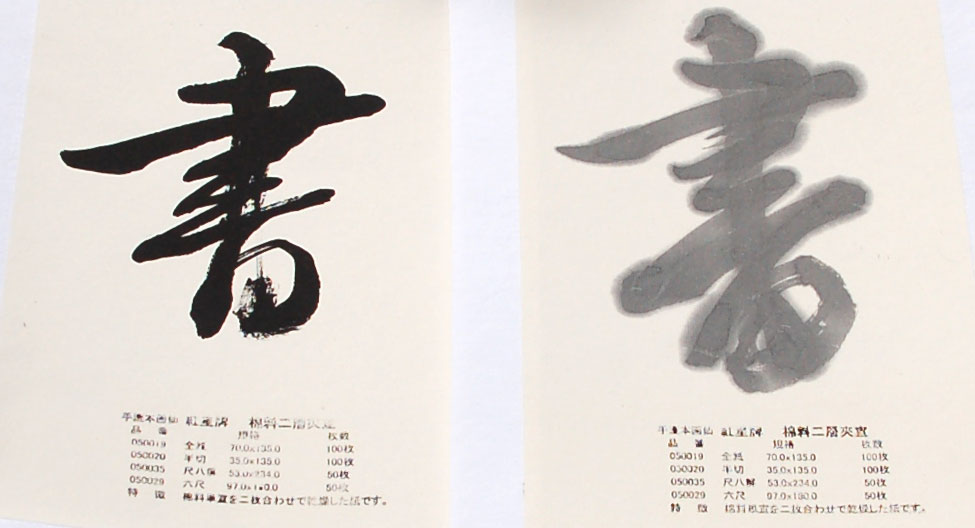 書
手漉本画仙 紅星牌 棉料二層夾宣
品番 規格 枚数
050019 全紙 70.0×135.0 100枚
050020 半切 35.0×135.0 100枚
050035 尺八屏 53.0×234.0 50枚
050029 六尺 97.0×180.0 50枚
特徴 棉料単宣を二枚合わせで乾燥した紙です。
書
手漉本画仙 紅星牌 棉料二層夾宣
品番 規格 枚数
050019 全紙 70.0×135.0 100枚
050020 半切 35.0×135.0 100枚
050035 尺八屏 53.0×234.0 50枚
050029 六尺 97.0×180.0 50枚
特徴 棉料単宣を二枚合わせで乾燥した紙です。